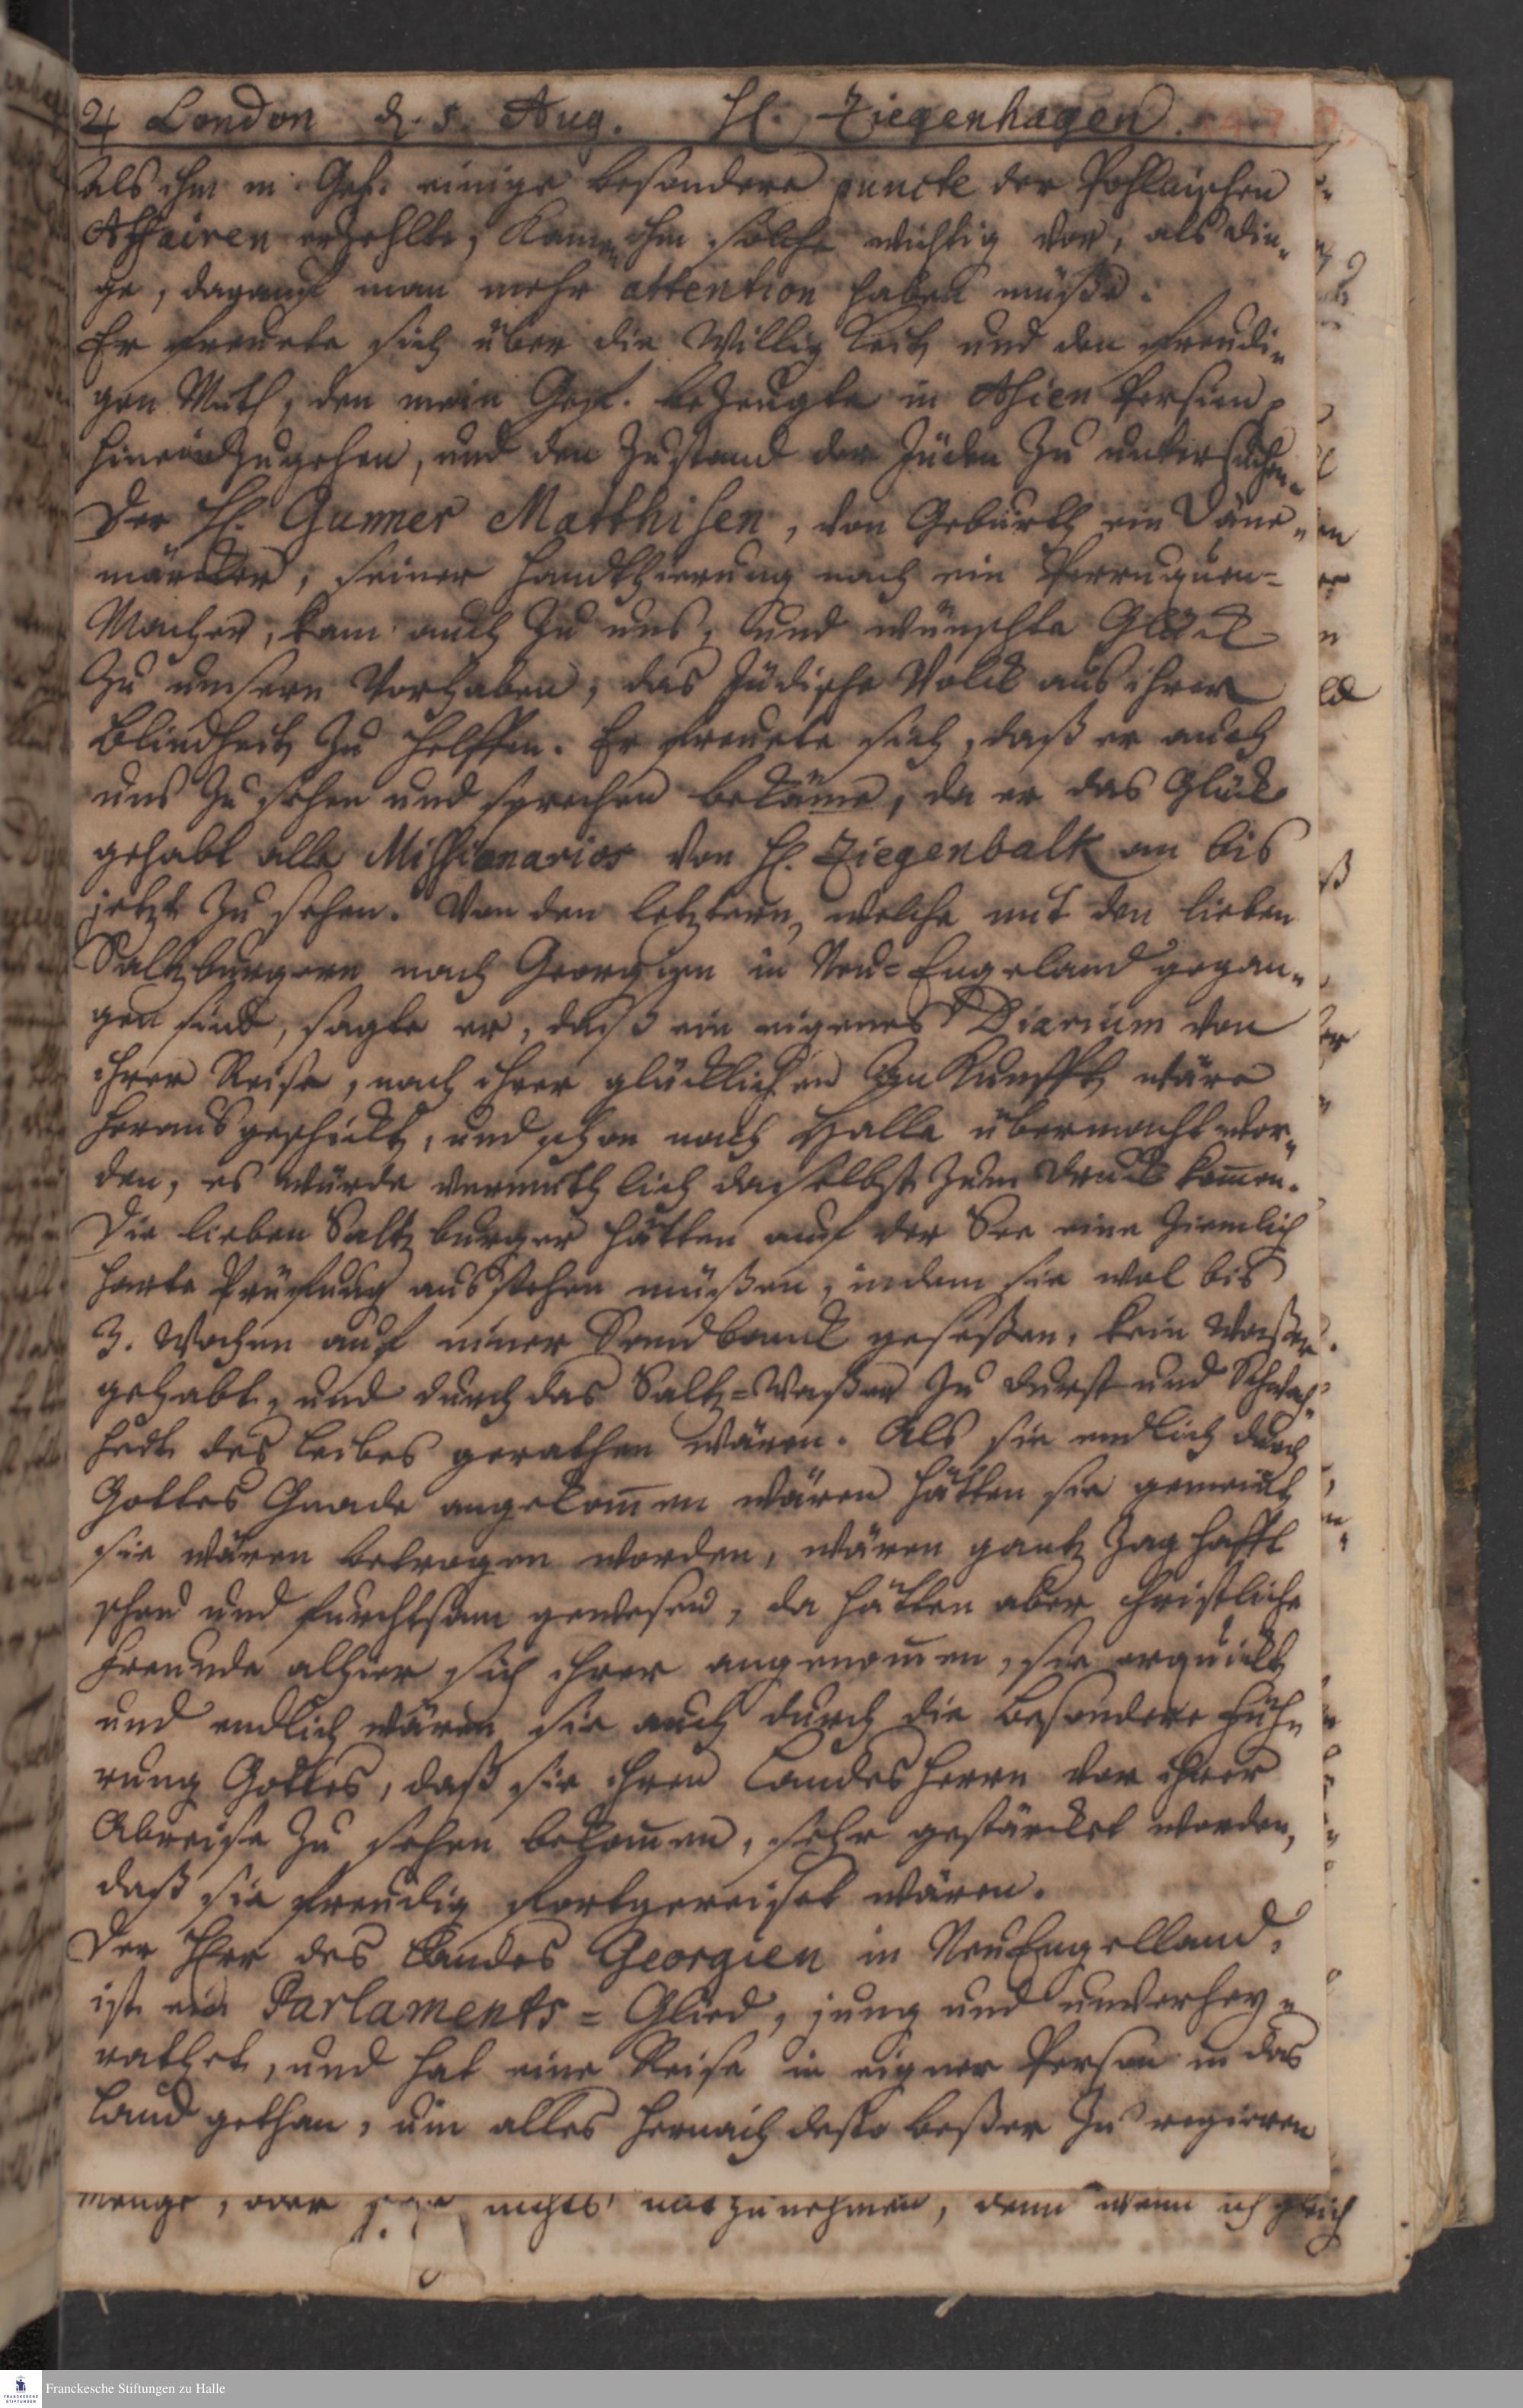 ♃ London d. 5. Aug. H. Ziegenhagen.
als ihm m. Gef. einige besondere puncte der Pohlnischen
Affairen erzehlte, kamen ihm solche wichtig vor, als din-
ge, darauf man mehr attention haben müße.
Er freuete sich über die Willigkeit und den freudi-
gen Muth, den mein Gef. bezeugte in Asien Persien
hineinzugehen, und den Zustand der Jüden zu untersuchen.
Der H. Gunner Matthisen, von Geburth ein Däne-
märcker, seiner Handthierung nach ein Perruquen-
Macher, kam auch zu uns, und wünschte Glück
zu unsern Vorhaben, das Jüdische Volck aus ihrer
Blindheit zu helffen. Er freuete sich, daß er auch
uns zu sehen und sprechen bekäme, da er das Glück
gehabt alle Missionarios von H. Ziegenbalk an bis
jetzt zu sehen. Von den letztern, welche mit den lieben
Saltzburgern nach Georgien in Neu-Engeland gegan-
gen sind, sagte er, daß ein eigenes Diarium von
ihrer Reise, nach ihrer glücklichen Ankunfft wäre
herausgeschickt, und schon nach Halle übermacht wor-
den, es würde vermuthlich daselbst zum Druck kom̅en.
Die lieben Saltzburger hätten auf der See eine ziemlich
harte Prüfung ausstehen müßen, indem sie wol bis
3. Wochen auf einer Sandbanck geseßen, kein Waßer
gehabt, und durch das Saltz-Waßer zu Durst und Schwach-
heit des Leibes gerathen wären. Als sie endlich durch
Gottes Gnade angekom̅en wären hätten sie gemeint
sie wären betrogen worden, wären gantz zaghafft
scheu und furchtsam gewesen, da hätten aber christliche
Freunde alhier sich ihrer angenom̅en, sie erquickt
und endlich wären sie auch durch die besondere Füh-
rung Gottes, daß sie ihren Landesherrn vor ihrer
Abreise zu sehen bekom̅en, sehr gestärcket worden,
daß sie freudig fortgereiset wären.
Der HErr des Landes Georgien in NeuEngelland,
ist ein Parlaments-Glied, jung und unverhey-
rathet, und hat eine Reise in eigner Person in das
Land gethan, um alles hernach desto beßer zu regieren
menge, oder nichts mitzunehmen, denn wenn ich gleich
Franckesche Stiftungen zu Halle